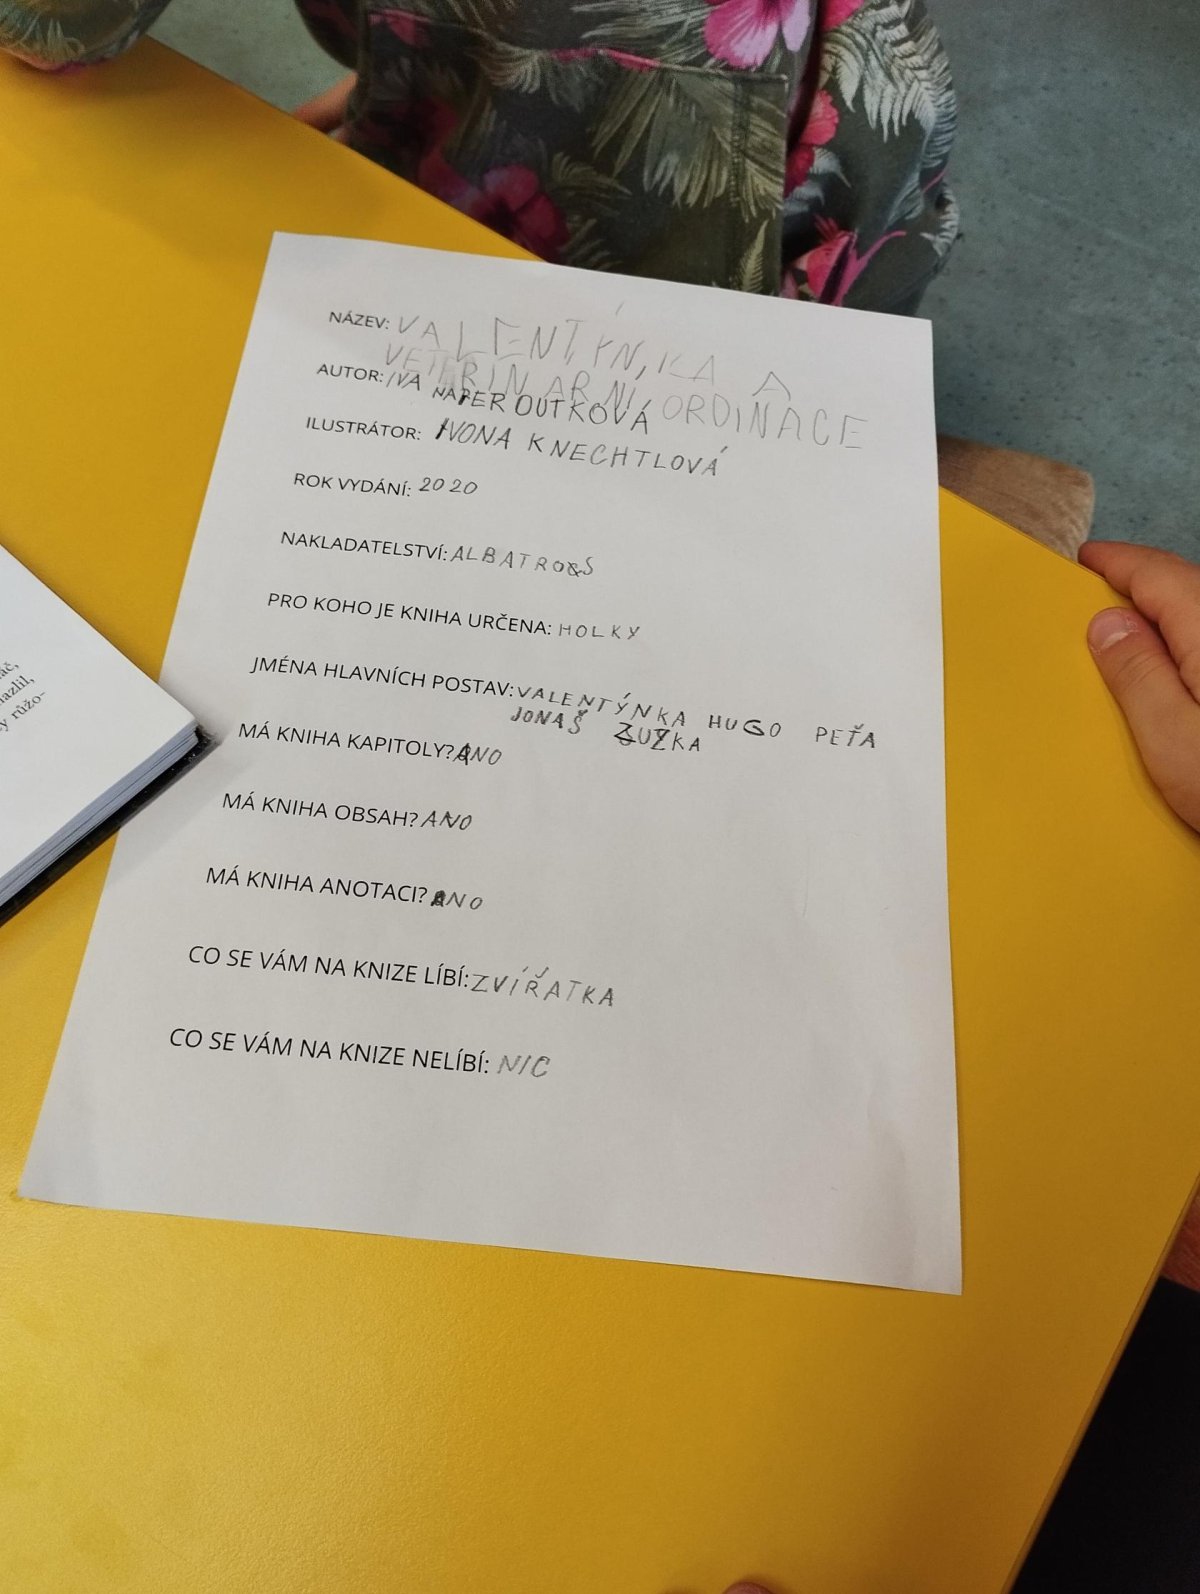 NÁZEV: VALENTÝNKA A
VETERINARNI ORDINACE
AUTOR: IVA
NAPEROUTKOVÁ
ILUSTRÁTOR: IVONA KNECHTLOVÁ
ROK VYDÁNÍ: 2020
NAKLADATELSTVÍ: ALBATROS
PRO KOHO JE KNIHA URČENA: HOLKY
JMÉNA HLAVNÍCH POSTAV: VALENTÝNKA HUGO PEŤA
JONAŠ ZUZKA
MÁ KNIHA KAPITOLY? ANO
MÁ KNIHA OBSAH? ANO
MÁ KNIHA ANOTACI? ANO
CO SE VÁM NA KNIZE LÍBÍ: ZVÍŘATKA
CO SE VÁM NA KNIZE NELÍBÍ: NIC